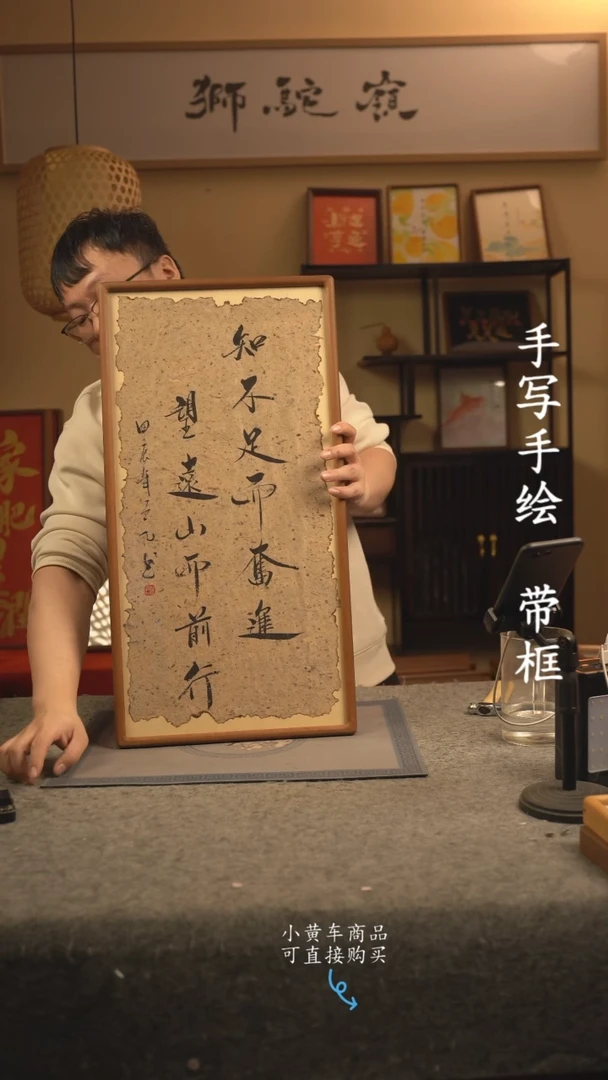 獅駝嶺
知不足而奮進
望遠山而前行
手写手绘 带框
小黄车商品
可直接购买